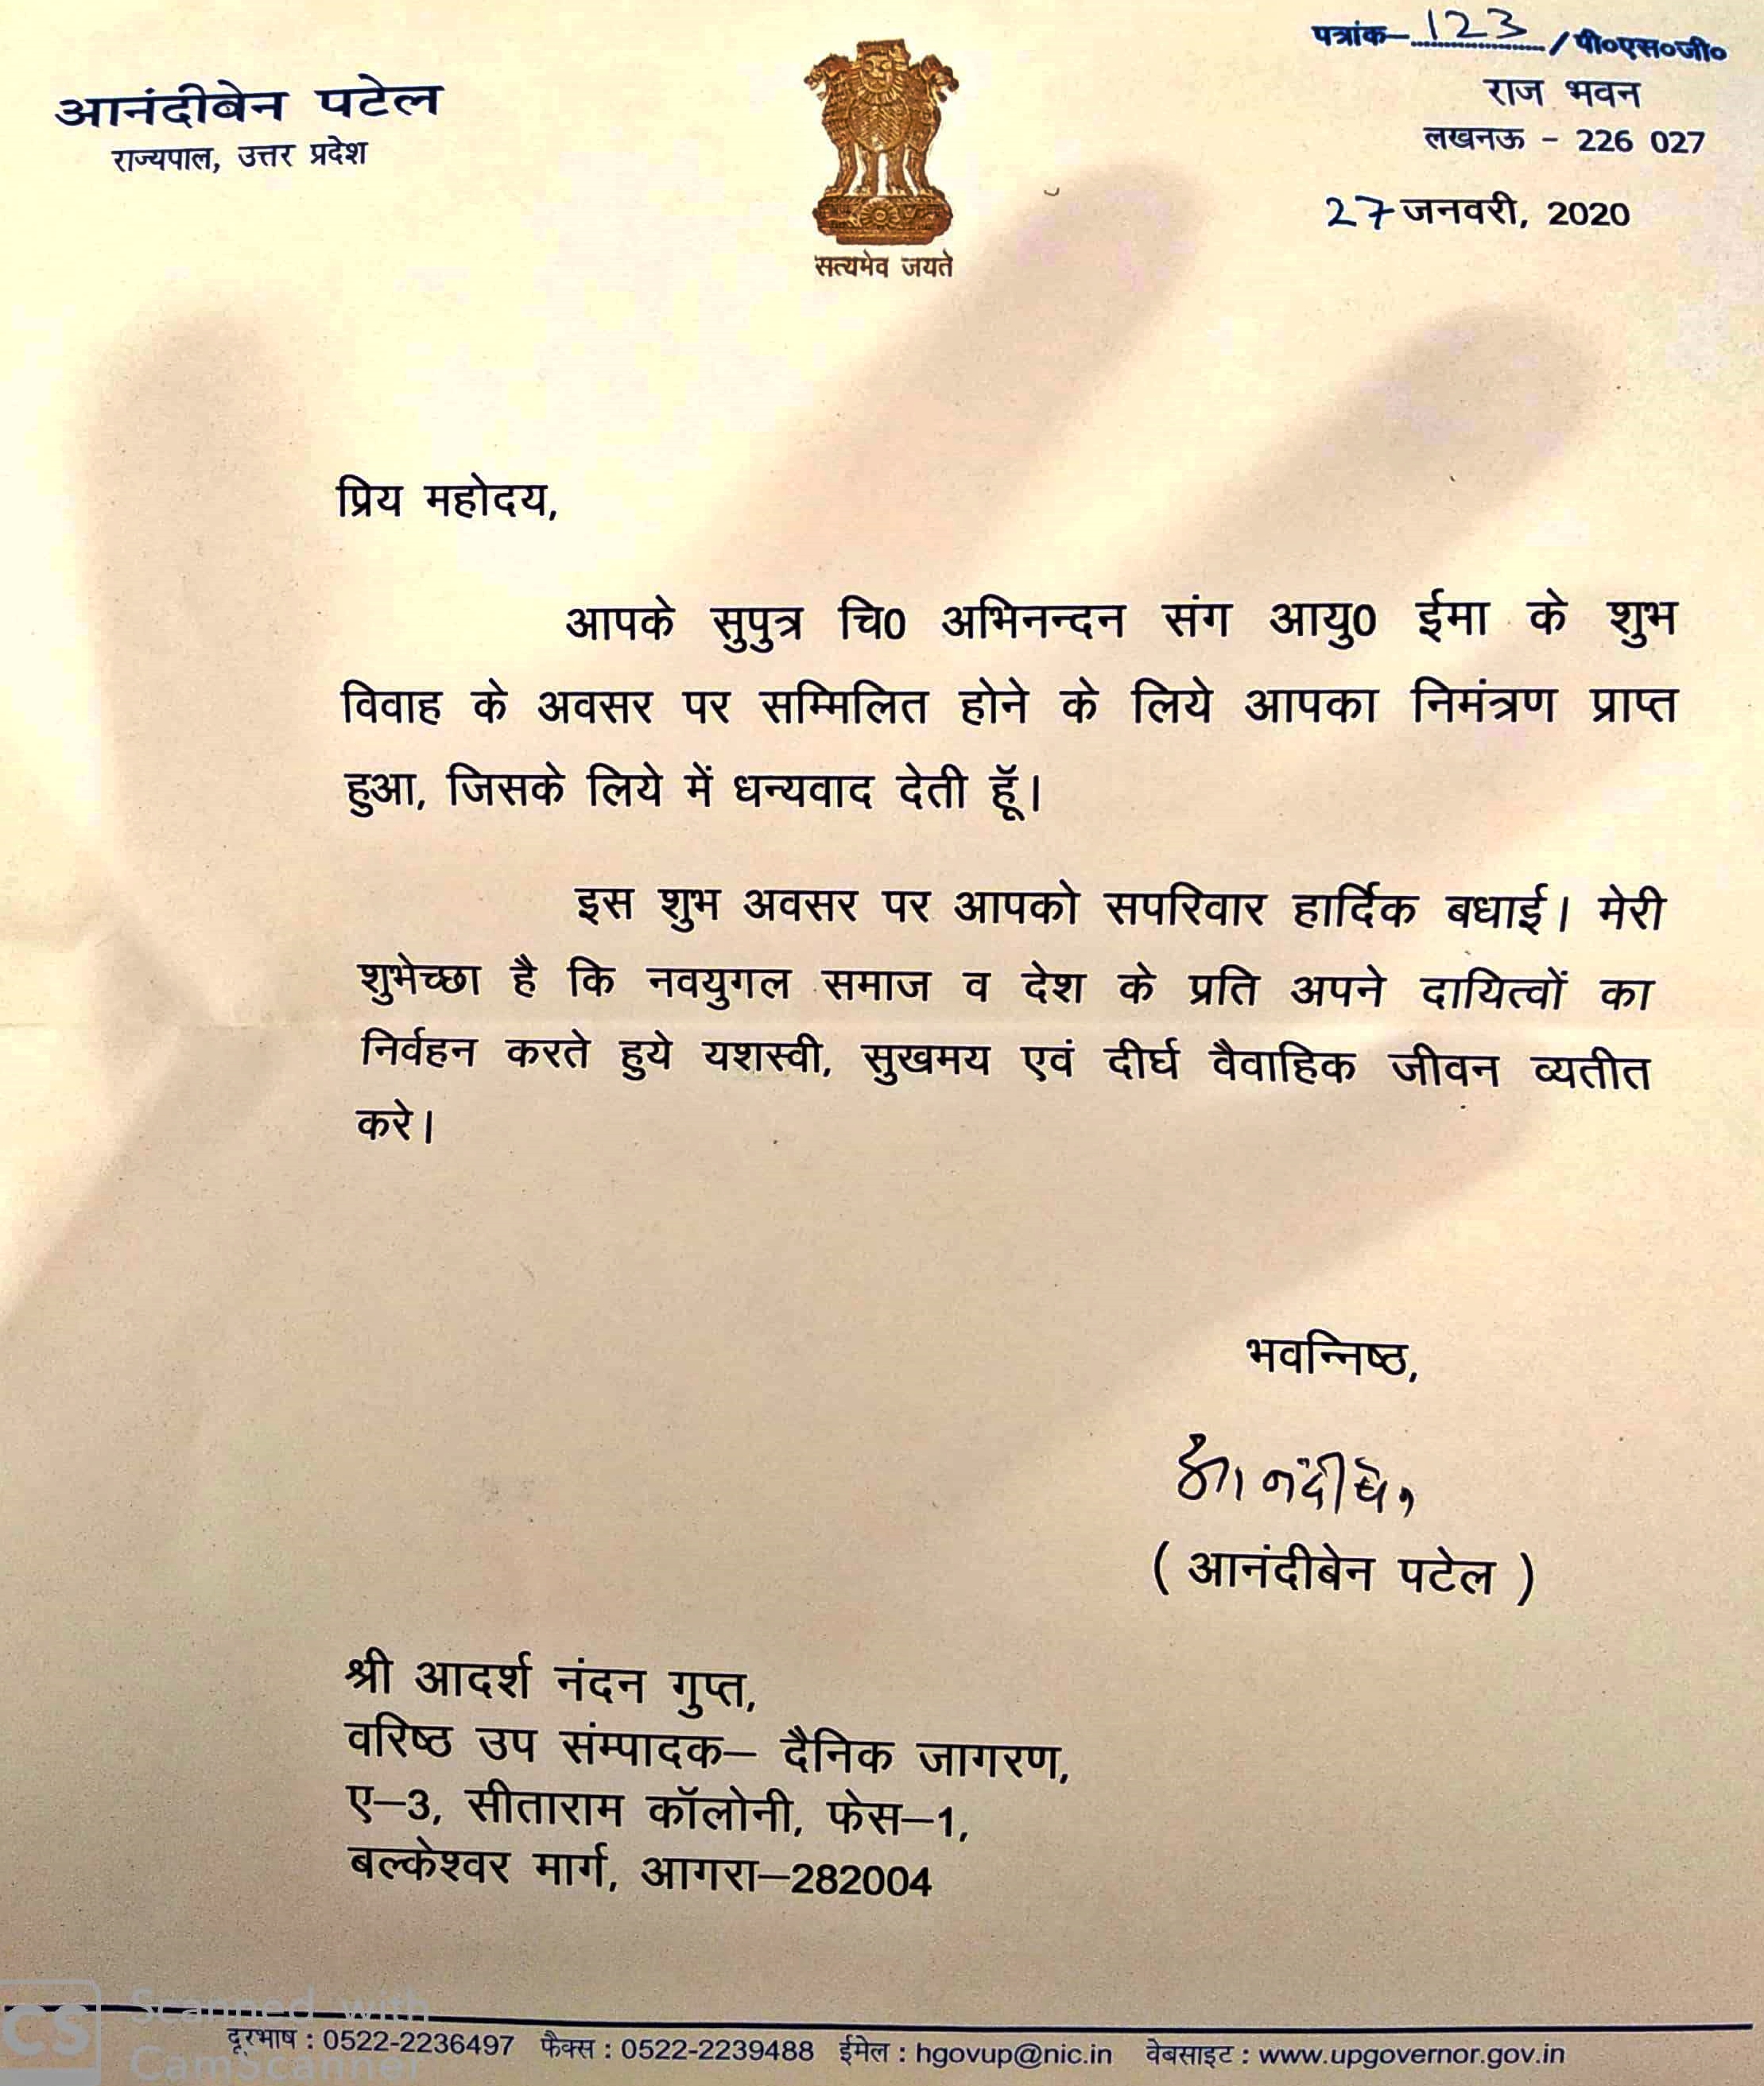 पत्रांक– 123 / पी०एस०जी०
आनंदीबेन पटेल
राज्यपाल, उत्तर प्रदेश
राज भवन
लखनऊ - 226 027
27 जनवरी, 2020
सत्यमेव जयते
प्रिय महोदय,
आपके सुपुत्र चि0 अभिनन्दन संग आयु0 ईमा के शुभ
विवाह के अवसर पर सम्मिलित होने के लिये आपका निमंत्रण प्राप्त
हुआ, जिसके लिये में धन्यवाद देती हूॅ।
इस शुभ अवसर पर आपको सपरिवार हार्दिक बधाई। मेरी
शुभेच्छा है कि नवयुगल समाज व देश के प्रति अपने दायित्वों का
निर्वहन करते हुये यशस्वी, सुखमय एवं दीर्घ वैवाहिक जीवन व्यतीत
करे।
भवन्निष्ठ,
आनंदीबेन
( आनंदीबेन पटेल )
श्री आदर्श नंदन गुप्त,
वरिष्ठ उप संम्पादक– दैनिक जागरण,
ए–3, सीताराम कॉलोनी, फेस–1,
बल्केश्वर मार्ग, आगरा–282004
CS Scanned with
CamScanner
दूरभाष : 0522-2236497 फैक्स : 0522-2239488 ईमेल : hgovup@nic.in वेबसाइट : www.upgovernor.gov.in